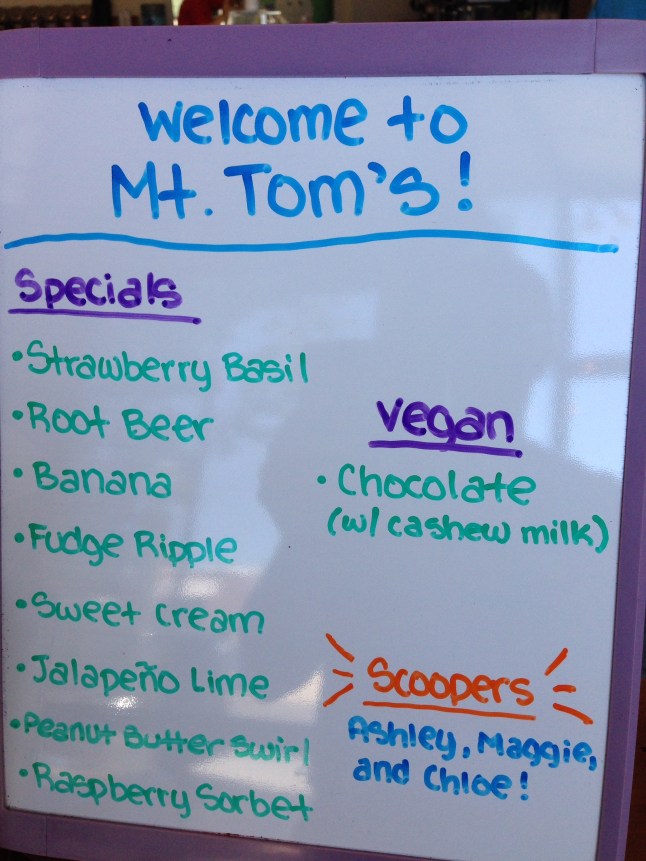 Welcome to
Mt. Tom's!
Specials
• Strawberry Basil
• Root Beer
• Banana
• Fudge Ripple
• Sweet Cream
• Jalapeño Lime
• Peanut Butter Swirl
• Raspberry Sorbet
Vegan
• Chocolate
(w/ cashew milk)
Scoopers
Ashley, Maggie,
and Chloe!